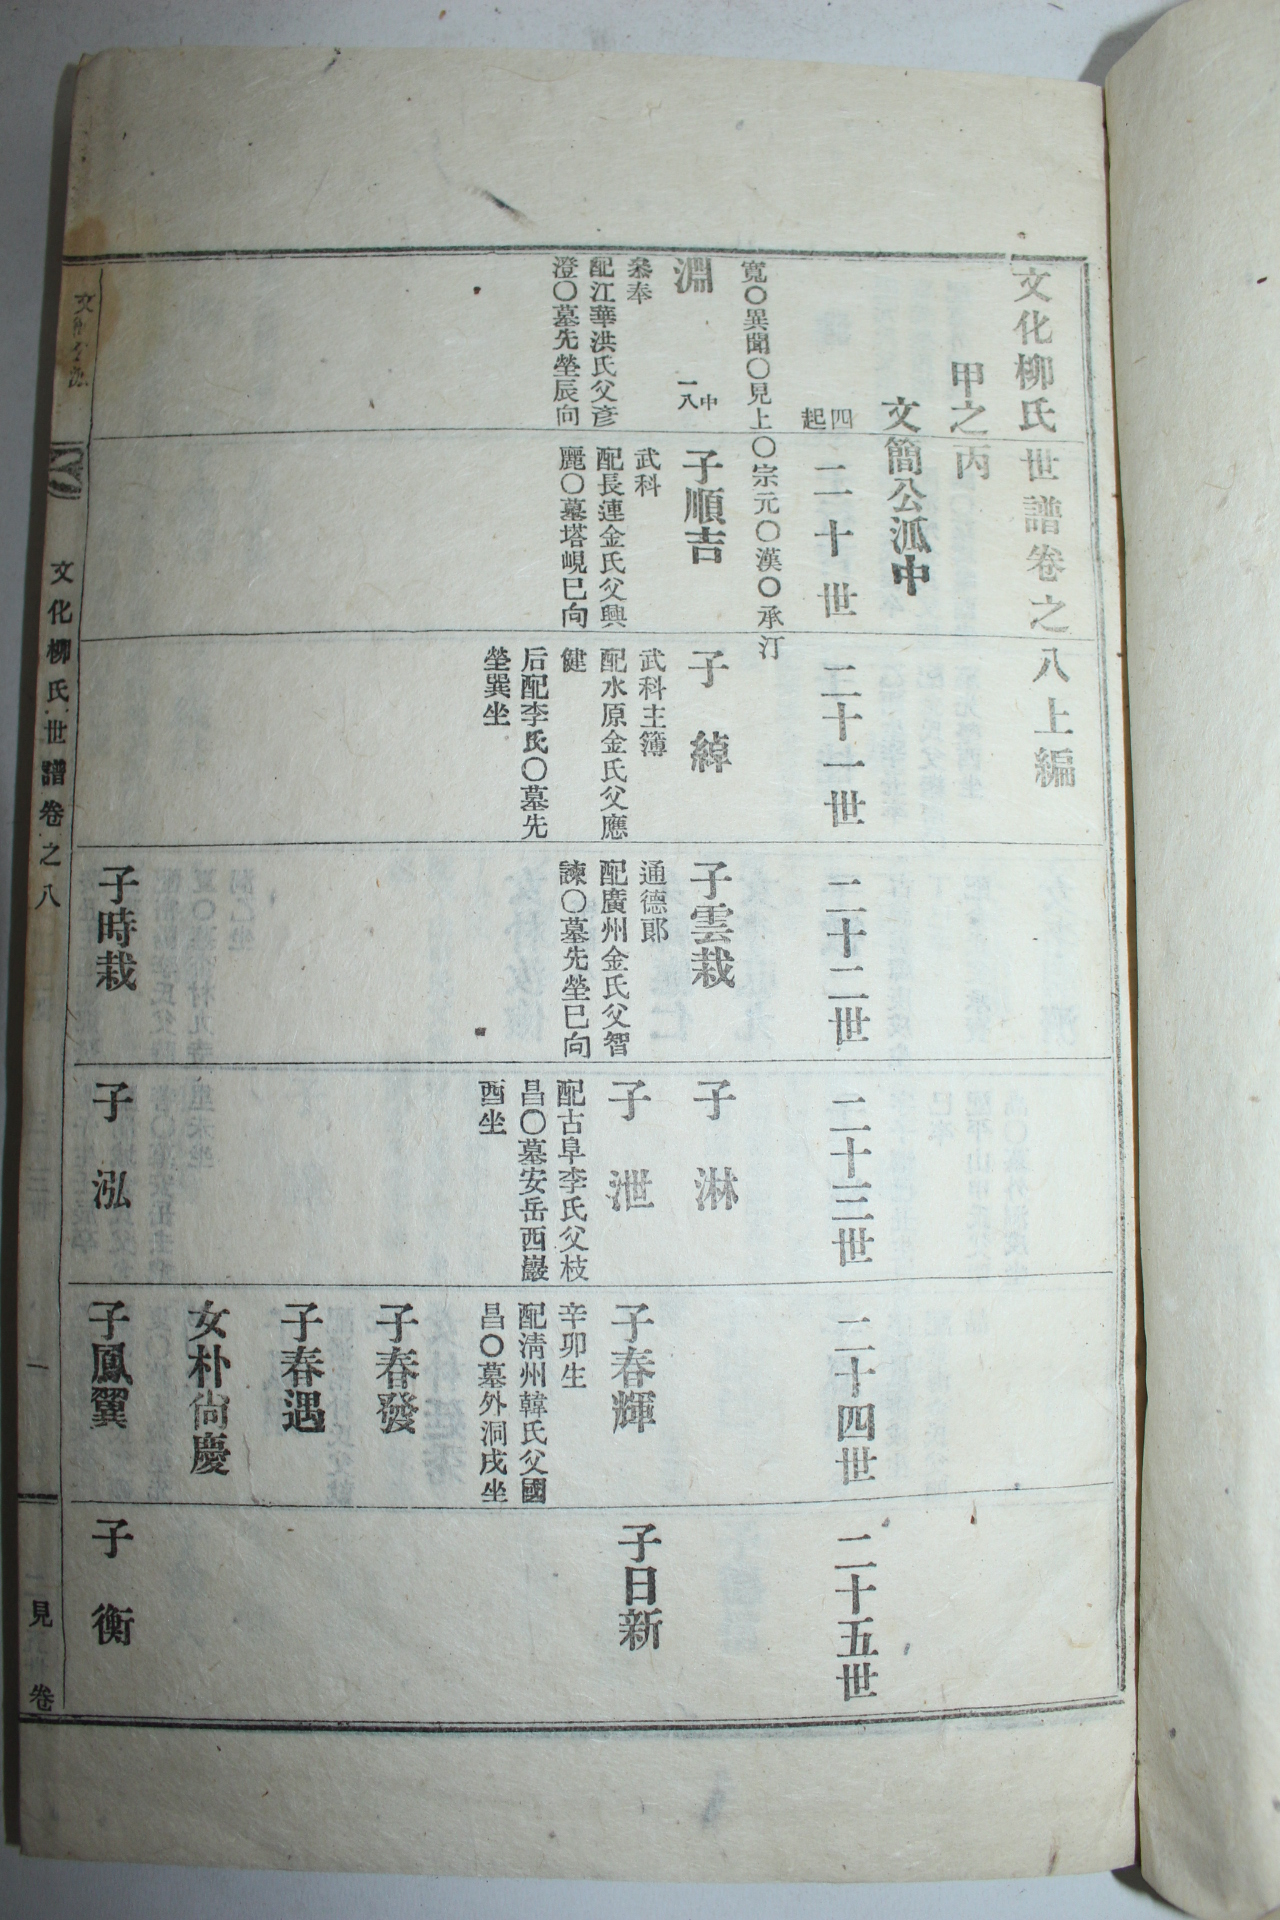 文化柳氏世譜卷之八上編
甲之丙
文簡公派中
四起
二十世
二十一世
二十二世
二十三世
二十四世
二十五世
寬〇異聞〇見上〇宗元〇漢〇承汀
淵
中一八
叅奉
配江華洪氏父彦
澄〇墓先塋辰向
子順吉
武科
配長連金氏父興
麗〇墓塔峴巳向
子綽
武科主簿
配水原金氏父應
健
后配李氏〇墓先
塋巽坐
子雲栽
通德郞
配廣州金氏父智
諫〇墓先塋巳向
子時栽
子淋
子泄
配古阜李氏父枝
昌〇墓安岳西巖
酉坐
子泓
子春輝
辛卯生
配淸州韓氏父國
昌〇墓外洞戌坐
子春發
子春遇
女朴尙慶
子鳳翼
子日新
子衡
文化柳氏世譜卷之八
一
見
卷